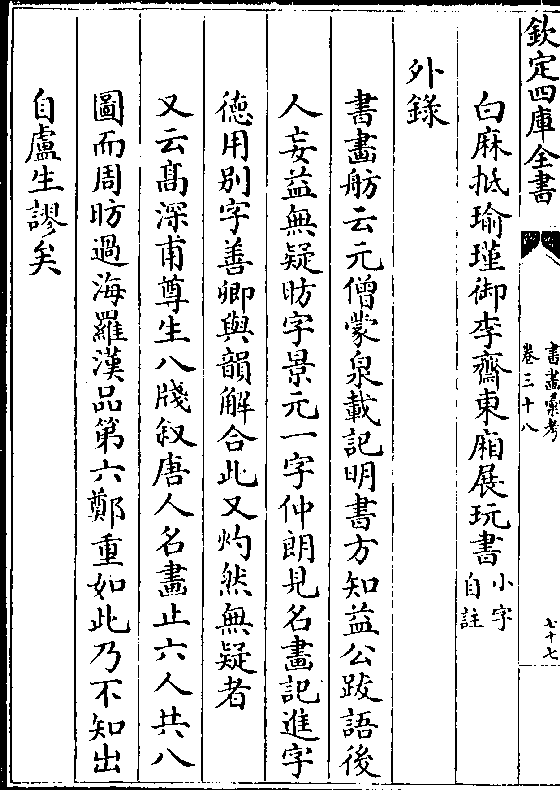 欽定四庫全書
書畫彙考
卷三十八
七十七
白麻抵瑜瑾御李齋東廂展玩書小字
自註
外錄
書畫舫云元僧蒙泉載記明書方知益公跋語後
人妄益無疑昉字景元一字仲朗見名畫記進字
徳用别字善卿與韻解合此又灼然無疑者
又云髙深甫尊生八牋叙唐人名畫止六人共八
圖而周昉過海羅漢品第六鄭重如此乃不知出
自盧生謬矣